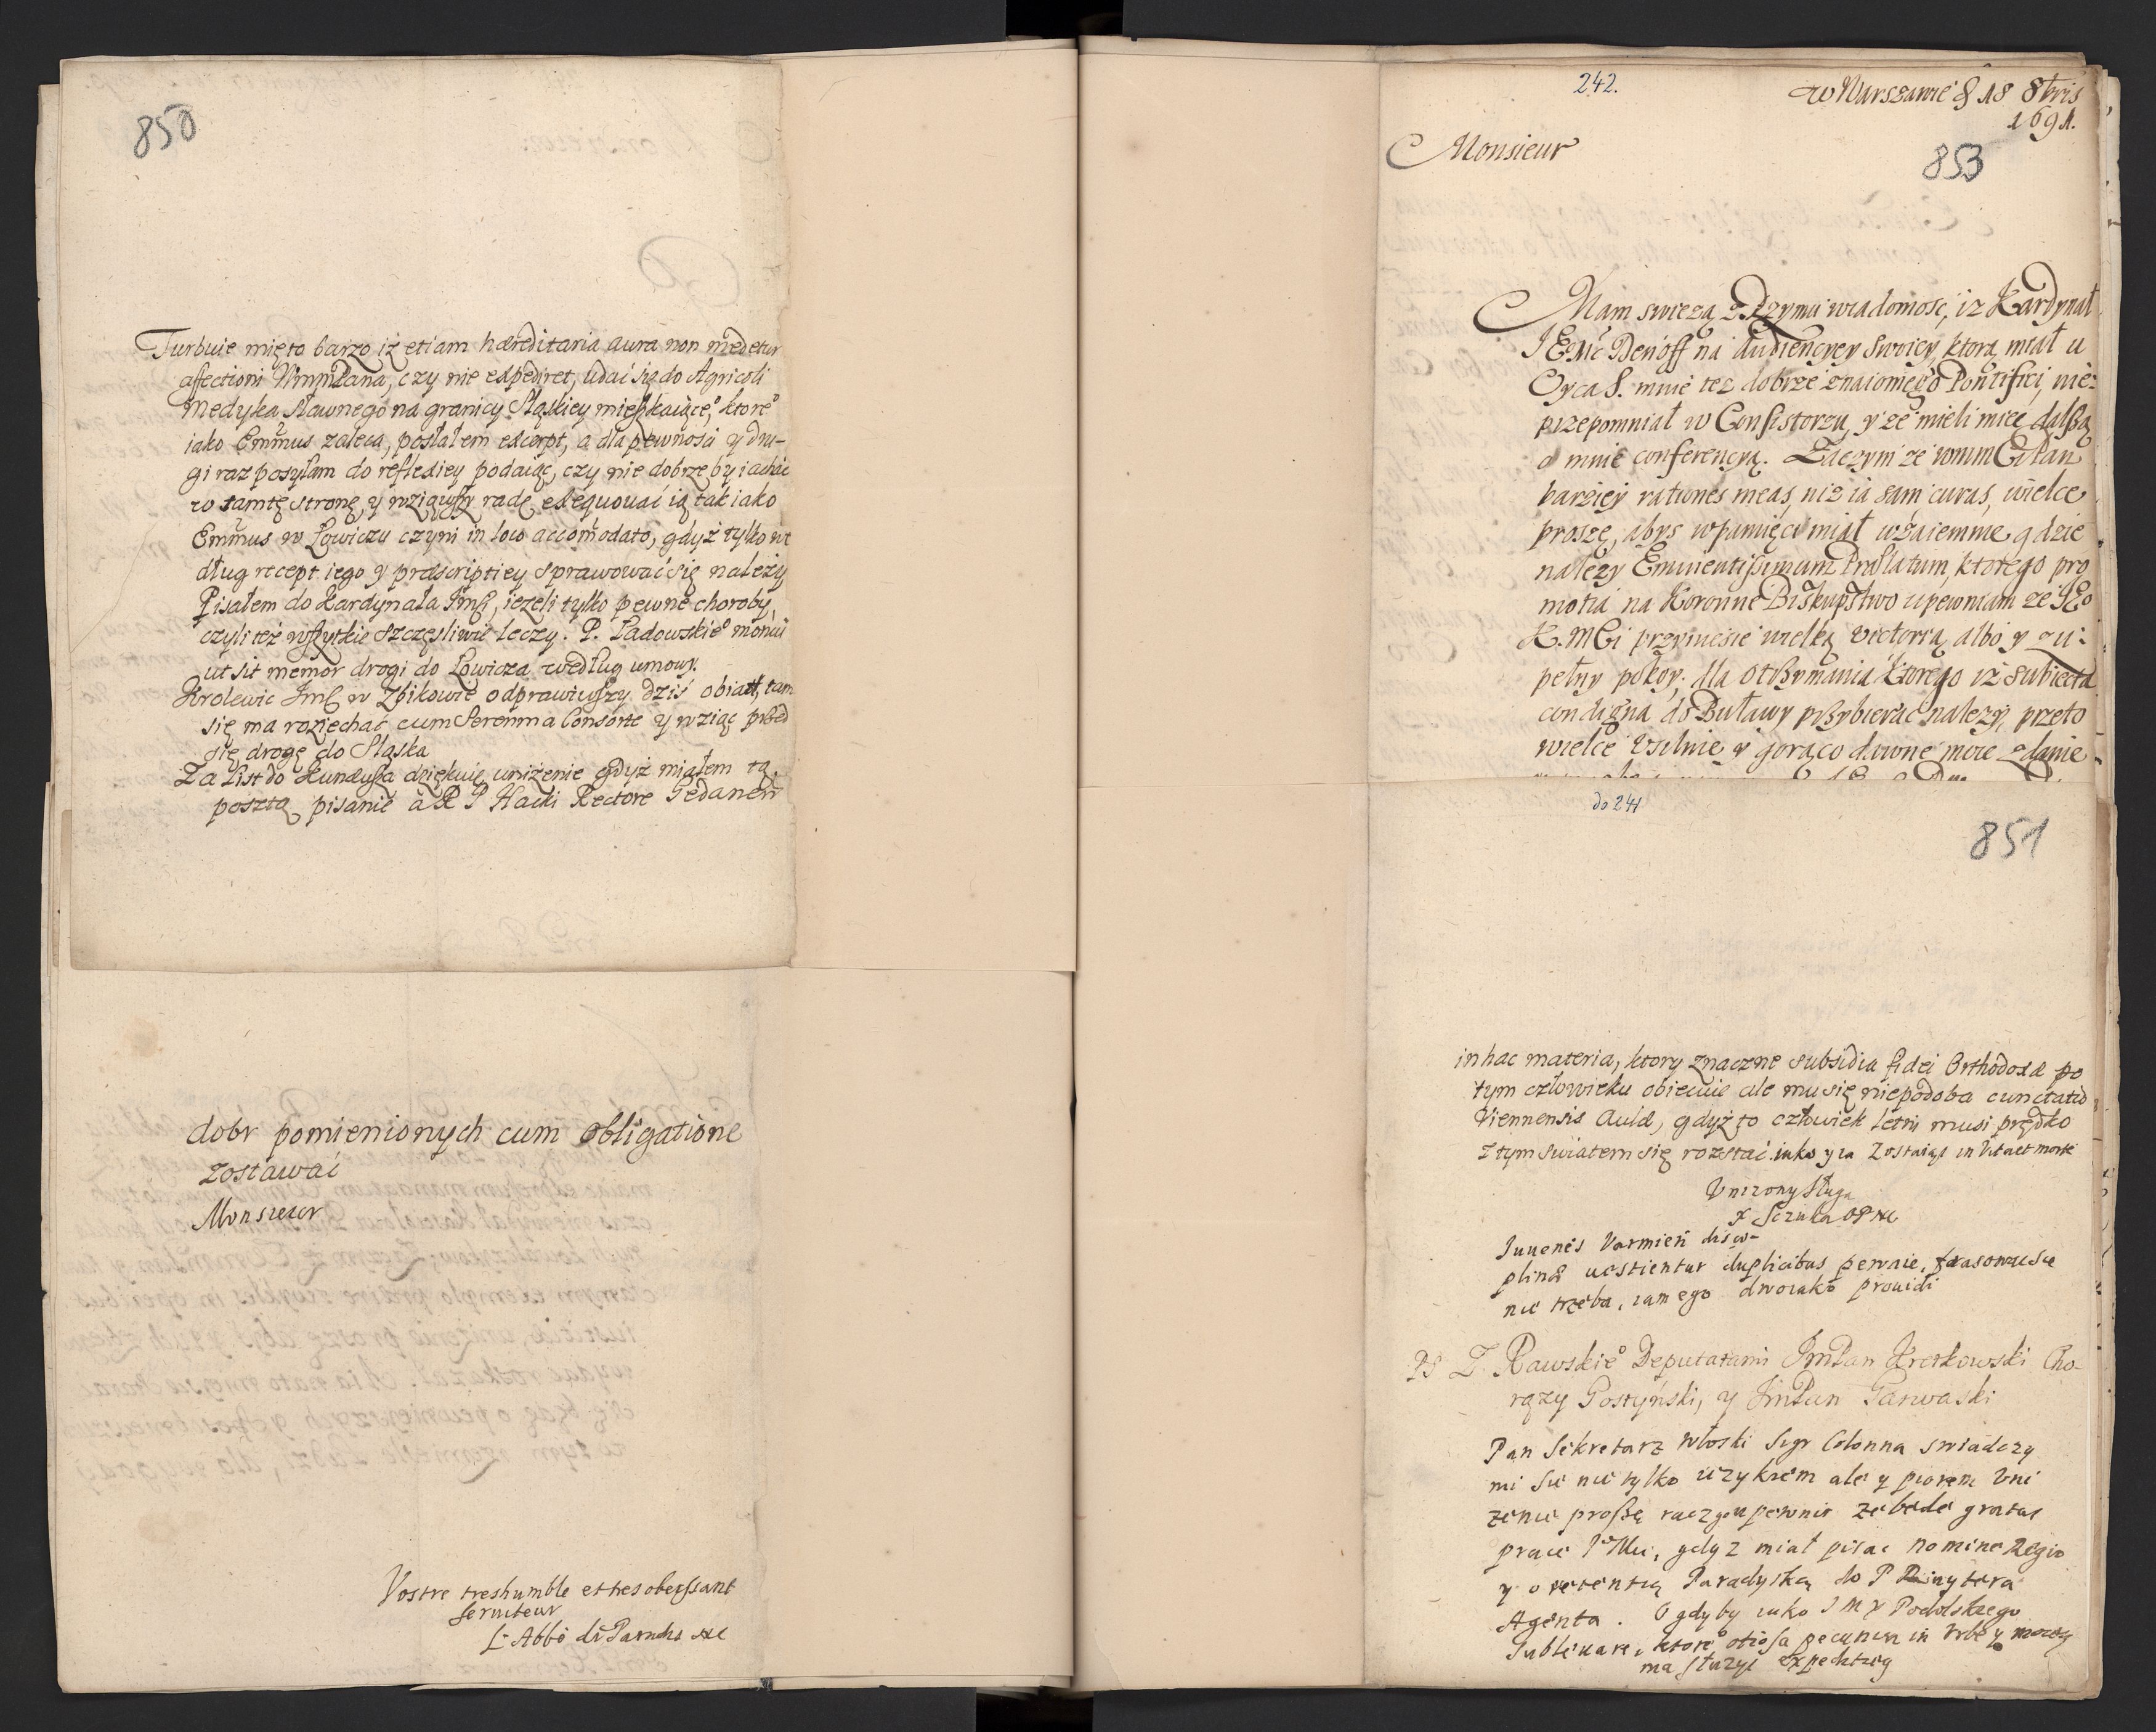 850
Turbuie mię to barzo iz etiam hæreditaria aura non medetur
affectioni WmmPana, czy nie expediret, udać się do Agricoli
Medyka sławnego na granicy Sląskiey mięszkaiące͒, ktore͒
iako Emmus zaleca, posłałem excerpt, a dla pewnosci y dru-
gi raz posyłam do reflexiey podaiąc, czy nie dobrze by iachać
w tamtę stronę, y wziąwszy radę exequować ią tak iako
Emmus w Łowiczu czyni in loco accomodato, gdyż tylko we
dług recept iego y præscriptiey sprawować się należy
Pisałem do Kardynała Jmści, ieżeli tylko pewne choroby,
czyli też wszytkie szczęsliwie leczy. P. Ladowskie͒ monui
ut sit memor drogi do Łowicza według umowy.
Krolewic Jmć w Zbikowie odprawiwszy dziś obiad, tam
się ma roziechać cum Serenma Consorte y wziąc przed
się drogę do Sląska
Za list do Hundyusza dziękuię uniżenie gdyż miałem tą
posztą pisanie à R P Hacki Rectore Gedanen
dobr pomienionych cum obligatione
zostawać
Monsieur
Vostre treshumble et tresobeyssant
seruiteur
L'Abbé de Paradis
242.
w Warszawie d 18 8bris
1691.
Monsieur
853
Mam swiezą z Rzymu wiadomosc, iz Kardynał
JEMć Denoff na Audiencyey swoiey, ktorą miał u
Oyca S. mnie tez dobrze znaiomego Pontifici, nie-
przepomniał w Consistorzu, y ze mieli miec dalszą
o mnie conferencyą. Zaczym ze wmmCiPan
barziey rationes meas, niz ia sam curas, wielce
proszę, abys w pamięci miał wzaiemnie gdzie
nalezy Eminentissimum Prælatum, ktorego pro
motia na Koronne Biskupstwo upewniam ze JEo
K. MCi przyniesie wielką victorią albo y zu-
pełny pokoy, dla otrzymania ktorego iz subiecta
condigna do Buławy przybierac nalezy, przeto
wielce usilnie y gorąco dawne moie zdanie
do 241
851
in hac materia, ktory znaczne subsidia fidei Orthodoxæ po
tym człowieku obiecuie ale mu się niepodoba cunctatio
Viennensis Aulæ, gdyż to człowiek letni musi prędko
z tym swiatem się rozstać. iako y ia zostaiąc in Vita et morte
Unizony Sługa
X Sczuka OP
Juuenes Varmien disci-
plinæ vestientur duplicibus pewnie, frasowac sie
nie trzeba, iam ego dwoiako prouidi
PS Z. Rawskie͒ Deputatami JmPan Kretkowski Cho-
rązy Gostyński, y JmPan Garwaski
Pan Sekretarz Włoski Sigr Colonna swiadczy
mi sie nie tylko iezykiem ale y piorem Uni
zenie proszę racz go upewnic ze bede gratus
prace JeMci, gdyz miał pisac nomine Regio
y o retentią Paradyską do P
Agenta. O gdyby iako J M X Podolskiego
subleuare, ktore͒ otiosa pecunia in Urbe y mocey
ma słuzyc